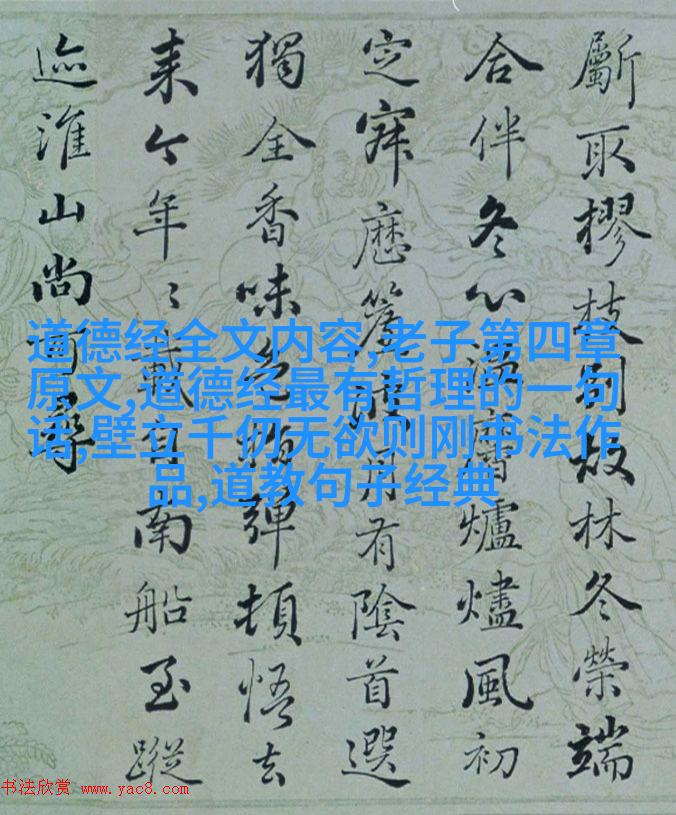 斸取樛枝别放林冬榮端
合伴冬心爐燼風初
定寐歷簷月有陰首選
獨全香味色彈頓悟去
来今年〻南船至蹤
迹淮山尚可尋
道德经全文内容,老子第四章
原文,道德经最有哲理的一句
话,壁立千仞无欲则刚书法作
品,道教句子经典
书法欣赏 www.yac8.com